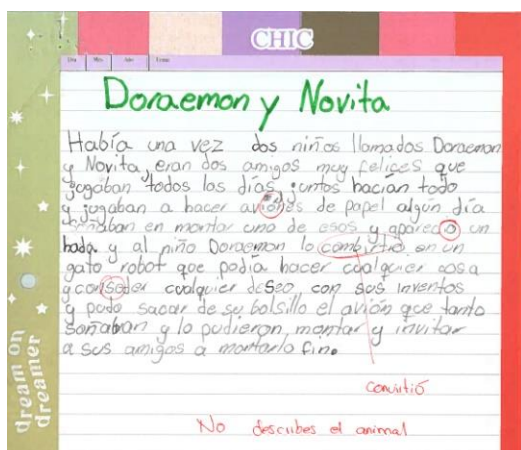 CHIC
Día Mes Año Tema
Doraemon y Novita
Había una vez dos niños llamados Doraemon
y Novita, eran dos amigos muy felices que
jugaban todos los días, juntos hacían todo
y jugaban a hacer aviones de papel algún día
soñaban en montar uno de esos y apareció un
hada y al niño Doraemon lo combirtio en un
gato robot que podía hacer cualquier cosa
y conseder cualquier deseo con sus inventos
y pudo sacar de su bolsillo el avión que tanto
soñaban y lo pudieron montar y invitar
a sus amigos a montarlo fin.
convirtió
No describes el animal
dream on
dreamer